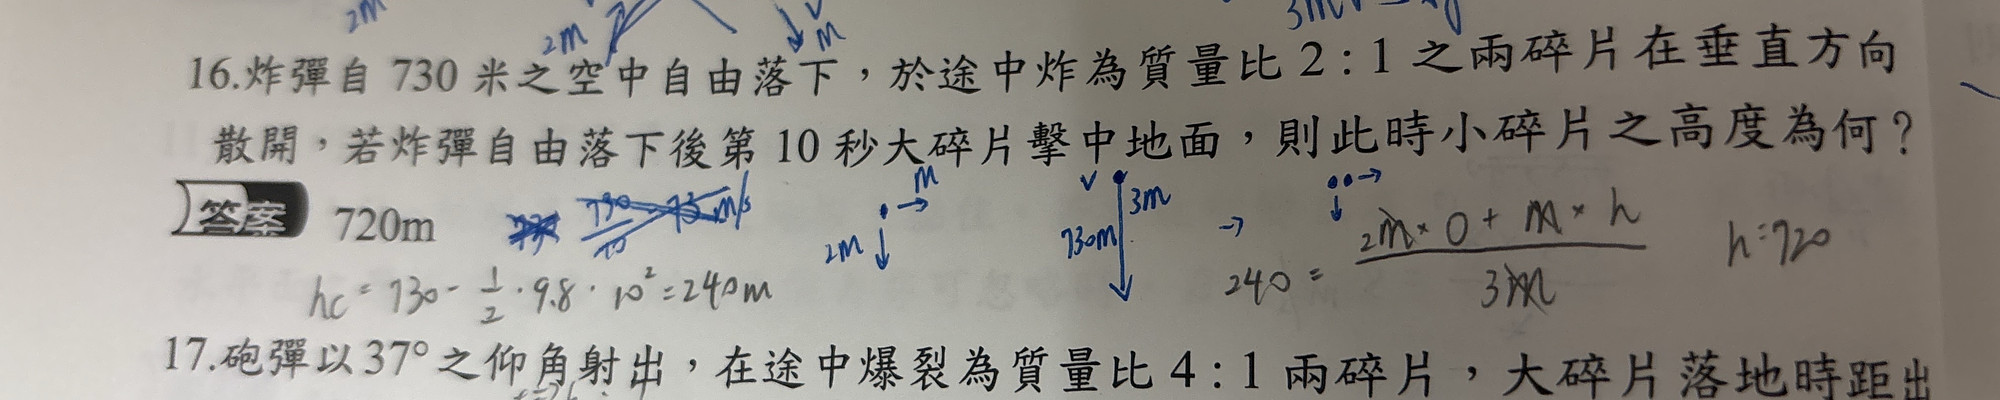 2M 2M V M 3M
16.炸彈自 730 米之空中自由落下，於途中炸為質量比 2:1 之兩碎片在垂直方向
散開，若炸彈自由落下後第 10 秒大碎片擊中地面，則此時小碎片之高度為何？
答案 720m
M 2M V 3M 730M
240 = (2M × 0 + M × h) / 3M h=720
hc = 730 - 1/2 · 9.8 · 10² = 240m
17.砲彈以 37° 之仰角射出，在途中爆裂為質量比 4:1 兩碎片，大碎片落地時距出